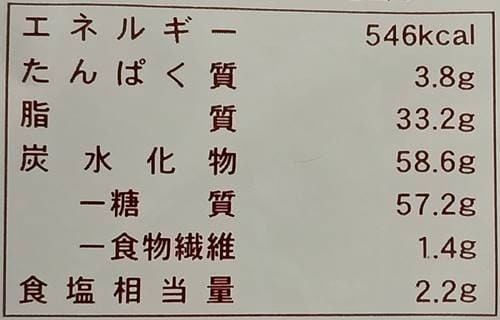 エネルギー 546kcal
たんぱく質 3.8g
脂質 33.2g
炭水化物 58.6g
ー糖質 57.2g
ー食物繊維 1.4g
食塩相当量 2.2g